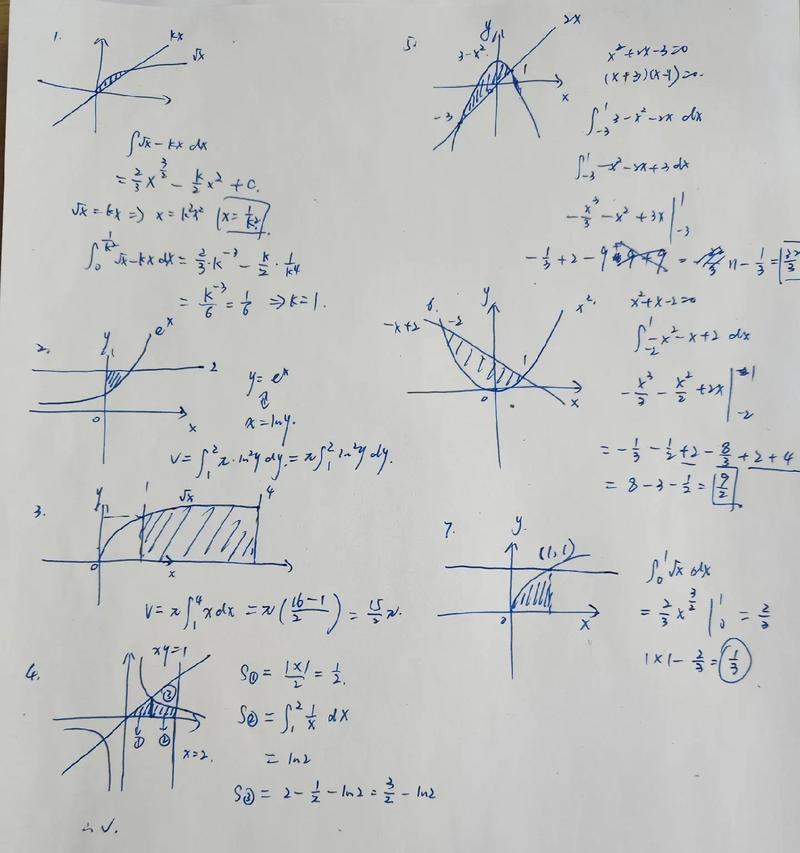 1.
kx
√x
∫√x - kx dx
= 2/3 x^(3/2) - k/2 x² + C.
√x = kx => x = k²x² (x = 1/k²)
∫₀^(1/k²) √x - kx dx = 2/3 · k⁻³ - k/2 · 1/k⁴
= k⁻³/6 = 1/6 => k = 1.
2.
y
eˣ
2
0
x
y = eˣ
x = lny.
V = ∫₁² π · ln²y dy = π∫₁² ln²y dy.
3.
y
1
√x
4
0
x
V = π∫₁⁴ x dx = π((16-1)/2) = 15/2 π.
4.
xy=1
③
① ②
x=2.
S① = |x|/2 = 1/2.
S② = ∫₁² 1/x dx
= ln2
S③ = 2 - 1/2 - ln2 = 3/2 - ln2
∴ V.
5.
y
2x
3-x²
1
x
-3
x²+2x-3=0
(x+3)(x-1)=0.
∫₋₃¹ 3-x²-2x dx
∫₋₃¹ -x²-2x+3 dx
-x³/3 - x² + 3x |₋₃¹
-1/3 + 2 - 9 = 11 - 1/3 = 32/3
6.
y
x²
-x+2
-2
1
0
x
x²+x-2=0
∫₋₂¹ -x²-x+2 dx
-x³/3 - x²/2 + 2x |₋₂¹
= -1/3 - 1/2 + 2 - 8/3 + 2 + 4
= 8 - 3 - 1/2 = 9/2
7.
y
(1,1)
0
x
∫₀¹ √x dx
= 2/3 x^(3/2) |₀¹ = 2/3
1×1 - 2/3 = 1/3